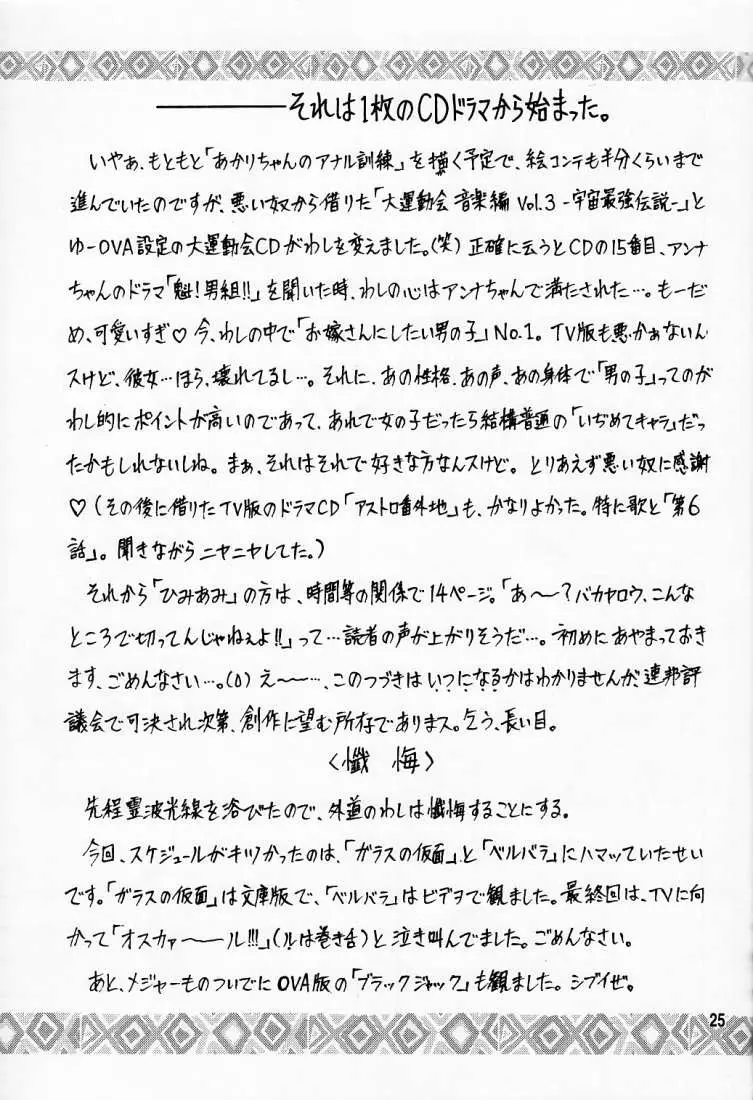 ———それは1枚のCDドラマから始まった。
いやぁ、もともと「あかりちゃんのアナル訓練」を描く予定で、絵コンテも半分くらいまで
進んでいたのですが、悪い奴から借りた「大運動会 音楽編 Vol.3 -宇宙最強伝説-」と
ゆーOVA設定の大運動会CDがわしを変えました。(笑) 正確に云うとCDの15番目、アンナ
ちゃんのドラマ「魁!男組!!」を聞いた時、わしの心はアンナちゃんで満たされた…。もーだ
め、可愛いすぎ♡ 今、わしの中で「お嫁さんにしたい男の子」No.1。TV版も悪かぁないん
スけど、彼女…ほら、壊れてるし…。それに、あの性格、あの声、あの身体で「男の子」ってのが
わし的にポイントが高いのであって、あれで女の子だったら結構普通の「いぢめてキャラ」だっ
たかもしれないしね。まぁ、それはそれで好きな方なんスけど。とりあえず悪い奴に感謝
♡(その後に借りたTV版のドラマCD「アストロ番外地」も、かなりよかった。特に歌と「第6
話」。聞きながらニヤニヤしてた。)
それから「ひみあみ」の方は、時間等の関係で14ページ。「あ〜〜?バカヤロウ、こんな
ところで切ってんじゃねぇよ!!」って…読者の声が上がりそうだ…。初めにあやまっておき
ます、ごめんなさい…。(0) え〜〜…、このつづきはいつになるかはわかりませんが、連邦評
議会で可決され次第、創作に望む所存でありまス。乞う、長い目。
〈懺 悔〉
先程霊波光線を浴びたので、外道のわしは懺悔することにする。
今回、スケジュールがキツかったのは、「ガラスの仮面」と「ベルバラ」にハマッていたせい
です。「ガラスの仮面」は文庫版で、「ベルバラ」はビデヲで観ました。最終回は、TVに向
かって「オスカァ〜〜ル!!!」(ルは巻き舌)と泣き叫んでました。ごめんなさい。
あと、メジャーものついでにOVA版の「ブラックジャック」も観ました。シブイぜ。
25